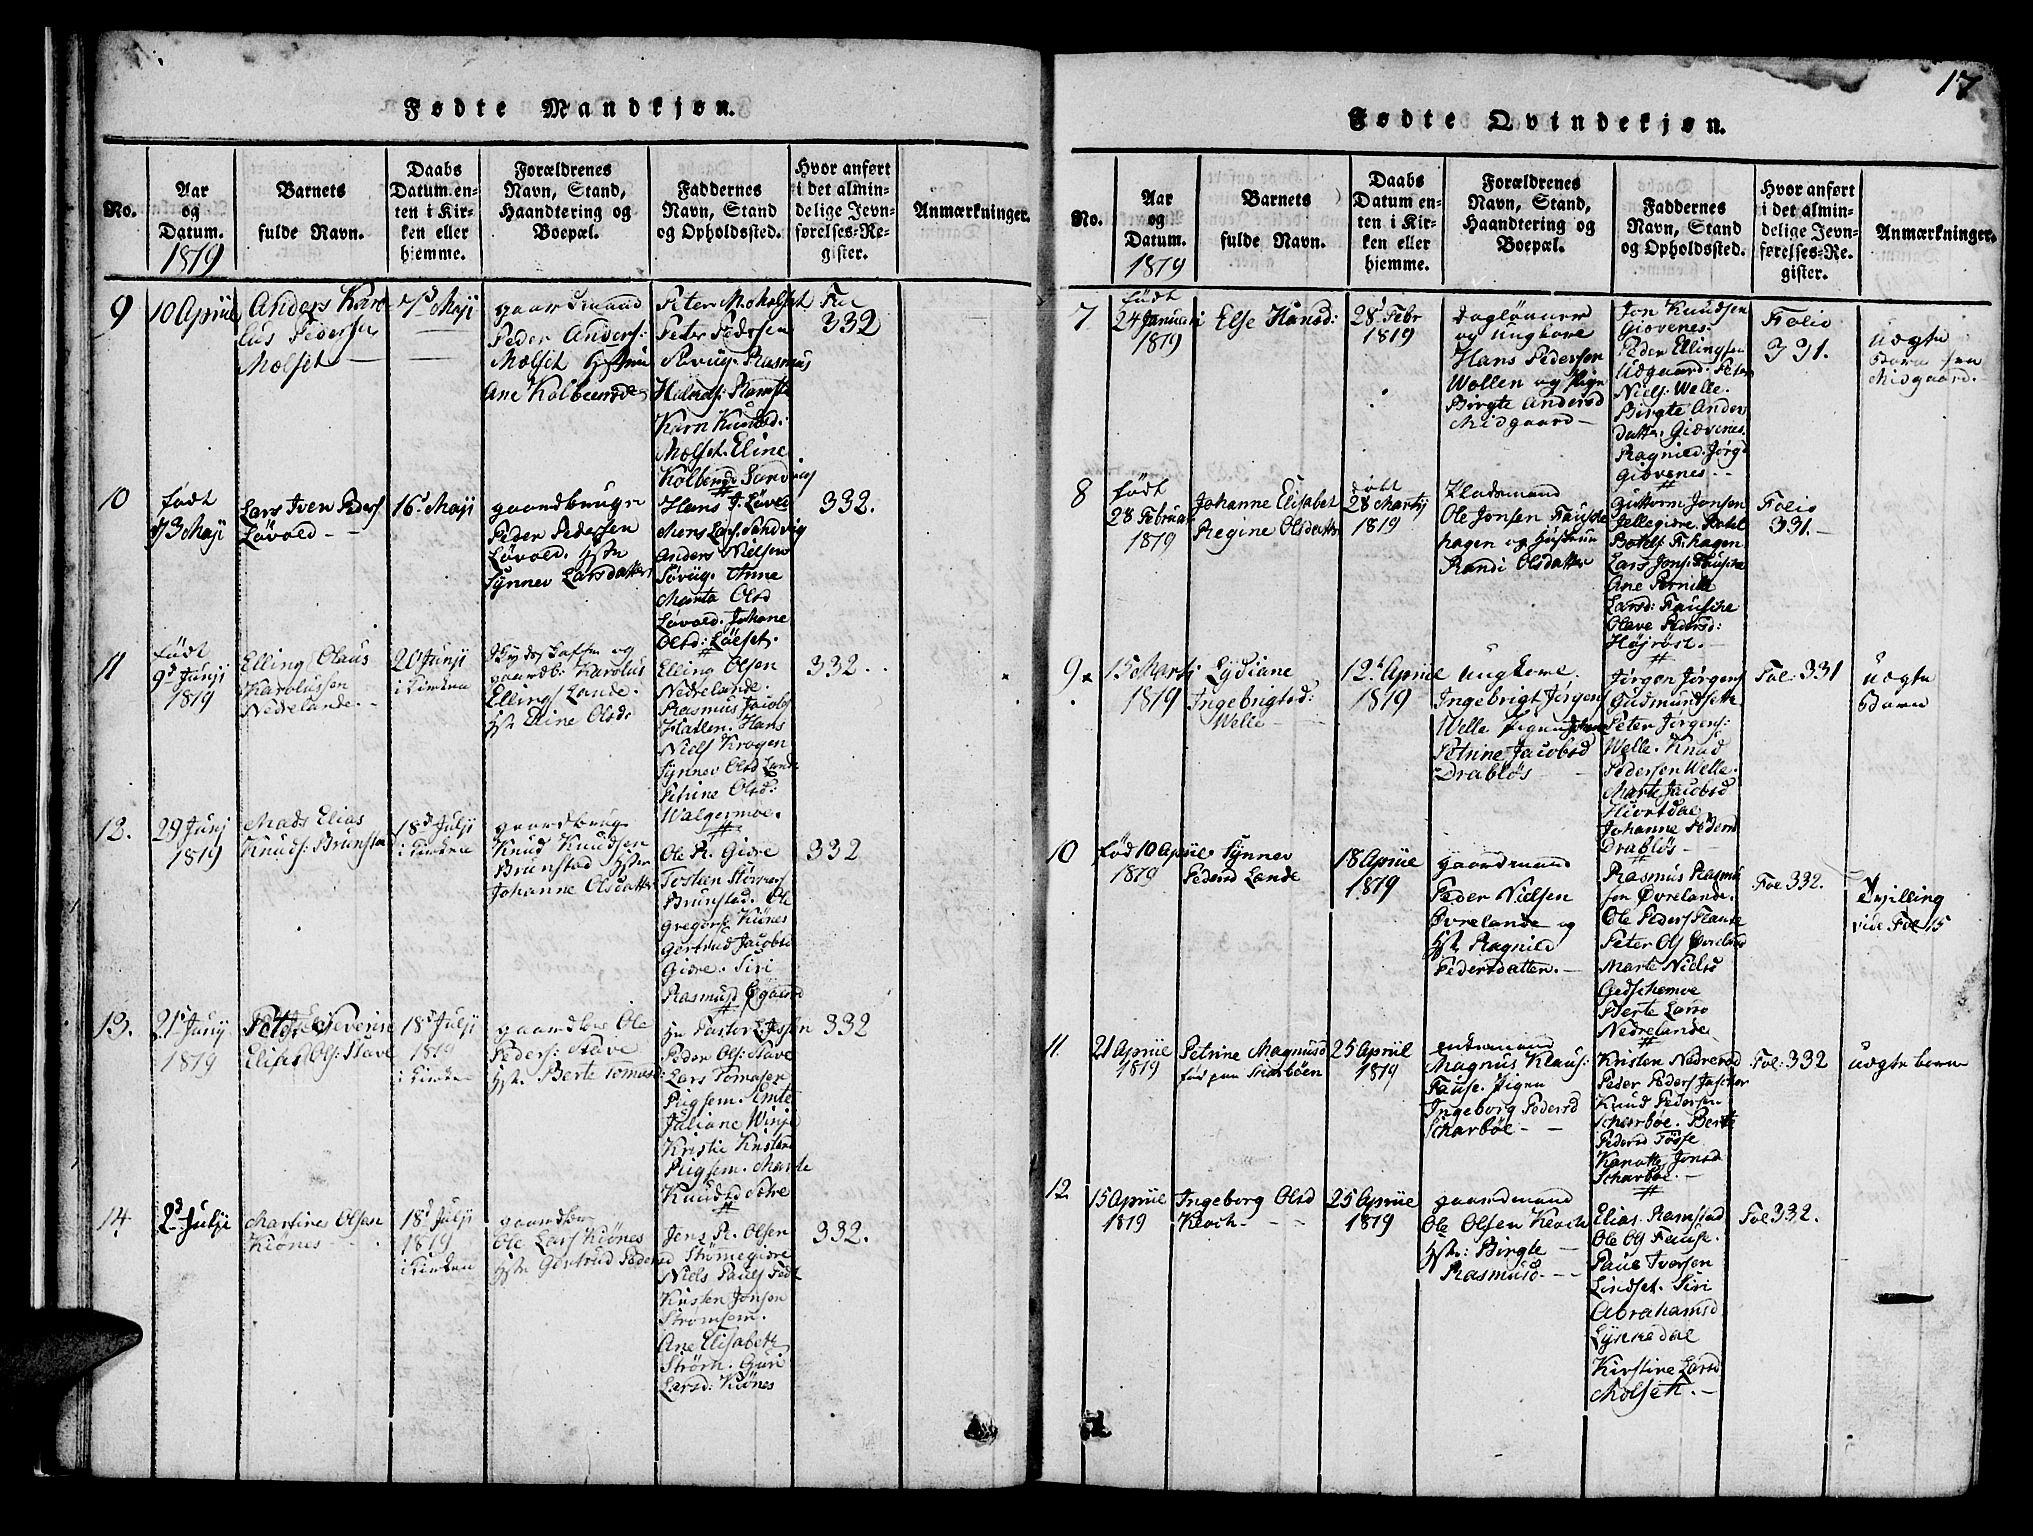 17
Fødte Mandkjøn.
No.
Aar
og
Datum.
1819
Barnets
fulde Navn.
Daabs
Datum en-
ten i Kir-
ken eller
hjemme.
Forældrenes
Navn, Stand,
Haandtering og
Boepæl.
Faddernes
Navn, Stand
og Opholdssted.
Hvor anført
i det almin-
delige Jevn-
førelses-Re-
gister.
Anmærkninger.
9
10 April
Anders Karo
lus Pedersen
Molset
7d Maji
gaardmand
Peder Anders:
Molset
Ane
Peter M. Molset
Peter Pedersen
Søvug. Rasmus
Karn Knudsd:
Molset. Eline
Fol
332
10
født
13 Maji
Lars Iven Peders
Løvold
16d Maji
gaardbruger
Peder Pedersen
Løvold. hstr
Synnev Larsdatter
Hans J. Løvold
Mons Lars. Sandvig
Anders Nielsen
Søvug. Anne
Marta Olsd
Løvold. Johane
Olsd: Løeset.
332.
11
født
9d Junji
1819
Elling Olaus
Karolussen
Nedrelande.
20d Junji
i Kirken
gaardb: Karolus
Ellings Lande.
hst Eline Olsd:
Elling Olsen
Nedrelande.
Rasmus Jacobs
Hatlen. Hans
Niels Krogen
Synnev Olsd Lande
Petrine Olsd:
Walgermoe.
332.
12.
29 Junj
1819
Mads Elias
Knuds: Brunstad
18d Julji
i Kirken
gaardbrug.
Knud Knudsen
Brunstad hstr
Johanne Olsdatter
Ole P. Giøre
Brunstad. Ole
Gregors. Kiønes
Gertrud Jacobsd
Giøre. Siri
Rasmusd
332
13.
21d Junij
1819
Peter Severin
Elias Ols: Stave
18d Julji
1819
i Kirken
gaardbr Ole
Peders: Stave
hst. Berte Tomasd:
hr Pastor
Peder Ols: Stave
Lars Tomasen
Juliane Winje
Kristi Kristen
Marte
Knudsd
332
14
2d Julji
Martines Olsen
Kiønes
18d Julji
1819
i Kirken
gaardbr
Ole Lars Kiønes
hstr Gertrud Pedersd
Jens P. Olsen
Strømegiøre
Niels Pauls
Kristen Jonsen
Ane Elisabeth
Strøm. Guri
Larsd: Kiønes
332.
Fødte Qvindekjøn.
No.
Aar
og
Datum.
1819
Barnets
fulde Navn.
Daabs
Datum en-
ten i Kir-
ken eller
hjemme.
Forældrenes
Navn, Stand,
Haandtering og
Boepæl.
Faddernes
Navn, Stand
og Opholdssted.
Hvor anført
i det almin-
delige Jevn-
førelses-Re-
gister.
Anmærkninger.
7
født
24 Januari
1819
Else Hansd:
28d Febr
1819
og ungkone
Hans Pedersen
Wollen og Pige
Birgte Andersd
Midgaard
Jon Knudsen
Giøvenes.
Peder Ellingsen
Udgaard. Peter
Niels: Welle.
Birgte Anders
datter. Giøvenes.
Ragnild. Jørgd
Giøvenes
Folio
331.
uægte
Midgaard.
8
født
28 Februar
1819
Johanne Elisabet
Regine Olsdatter
døbt
28 Martij
1819
Pladsmand
Ole Jonsen Fausche
hagen og Hustrue
Randi Olsdatter
Guttorm Jonsen
Lars Jons. Fausche
Ane Pernille
Larsd: Fausche
Olave Pedersd:
Højrøst.
Folio
331.
9
15 Martj
1819
Lydiane
Ingebrigtsd:
Welle
12d Aprile
1819
ungkone.
Ingebrigt Jørgens
Welle Pigen
Petrine Jacobsd
Drabløs
Jørgen Jørgens
Gudmundsette
Peter Jørgens:
Welle. Knud
Pedersen Welle.
Marte Jacobsd
Hiortdae
Johanne Pedersd
Drabløs
Fol: 331
uægte
Barn
10
fød 10 Aprile
1819
Synnev
Pedersd Lande
18 Aprile
1819
gaardmand
Peder Nielsen
Øvrelande og
hst. Ragnild
Pedersdatter.
Rasmus Rasmus
sen Øvrelande.
Ole Peders Flaute
Peter Ols Øvreland
Marte Nielsd
Gedschemoe
Berte Larsd
Nedrelande
Fol 332.
Tvilling
vide Fol 15
11
21 Aprile
1819
Petrine Magnusd
fød paa
25 Aprile
1819
enkemand
Magnus Klaus:
Fause. Pigen
Ingeborg Pedersd
Scharbøe
Kristen
Peder Peders
Knud Pedersen
Scharbøe. Berte
Pedersd Tøsse
Jonsd
Scharbøe.
Fol: 332
uægte barn
12
15 Aprile
1819
Ingeborg Olsd
Kloch
25 Aprile
1819
gaardmand
Ole Olsen Kloch
hstr: Birgte
Rasmusd.
Elias. Ramstad
Ole Ols Fause.
Paul Iversen
Lindset. Siri
Abrahamsd
Lynnedal
Kirstine Larsd
Molset.
Fol 332.